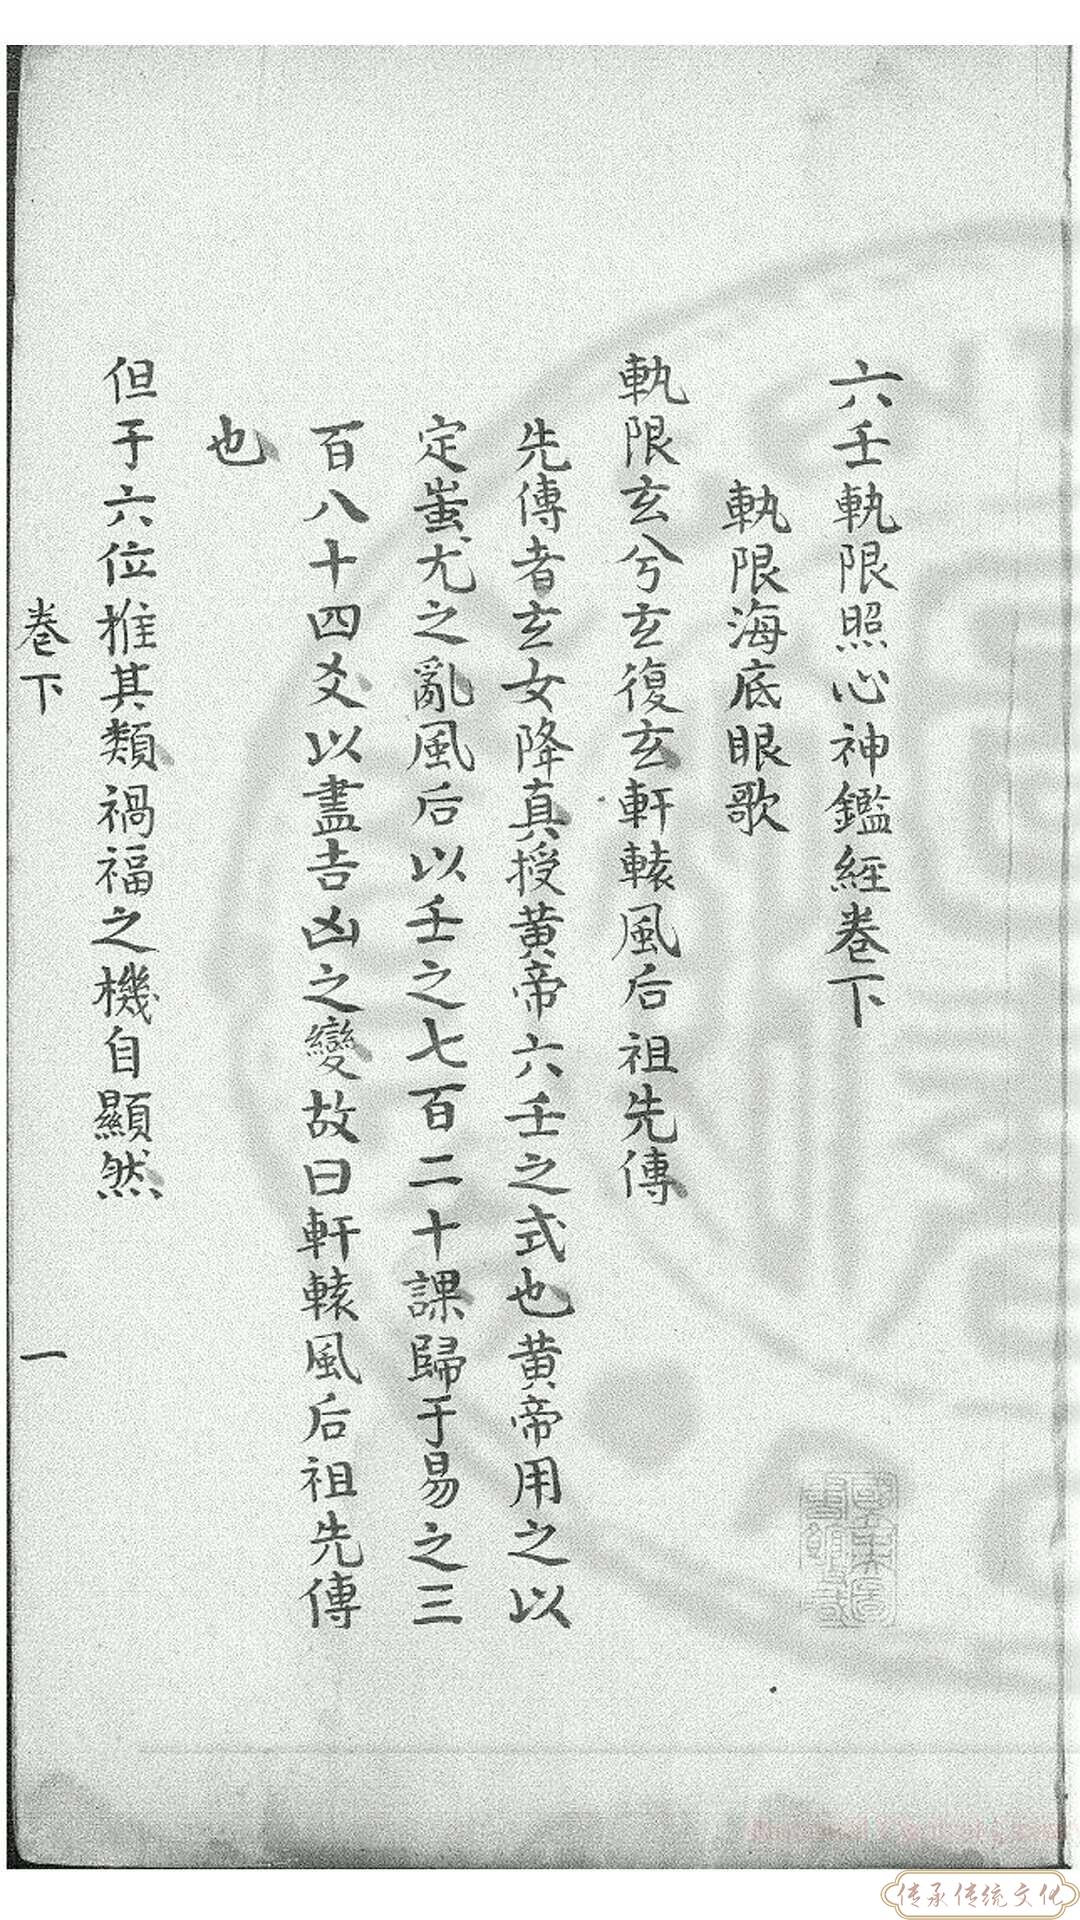 六壬軌限照心神鑑經卷下
軌限海底眼歌
軌限玄兮玄復玄軒轅風后祖先傳
先傳者玄女降真授黃帝六壬之式也黃帝用之以
定蚩尤之亂風后以壬之七百二十課歸于易之三
百八十四爻以盡吉凶之變故曰軒轅風后祖先傳
也
但于六位推其類禍福之機自顯然
卷下
一
传承传统文化